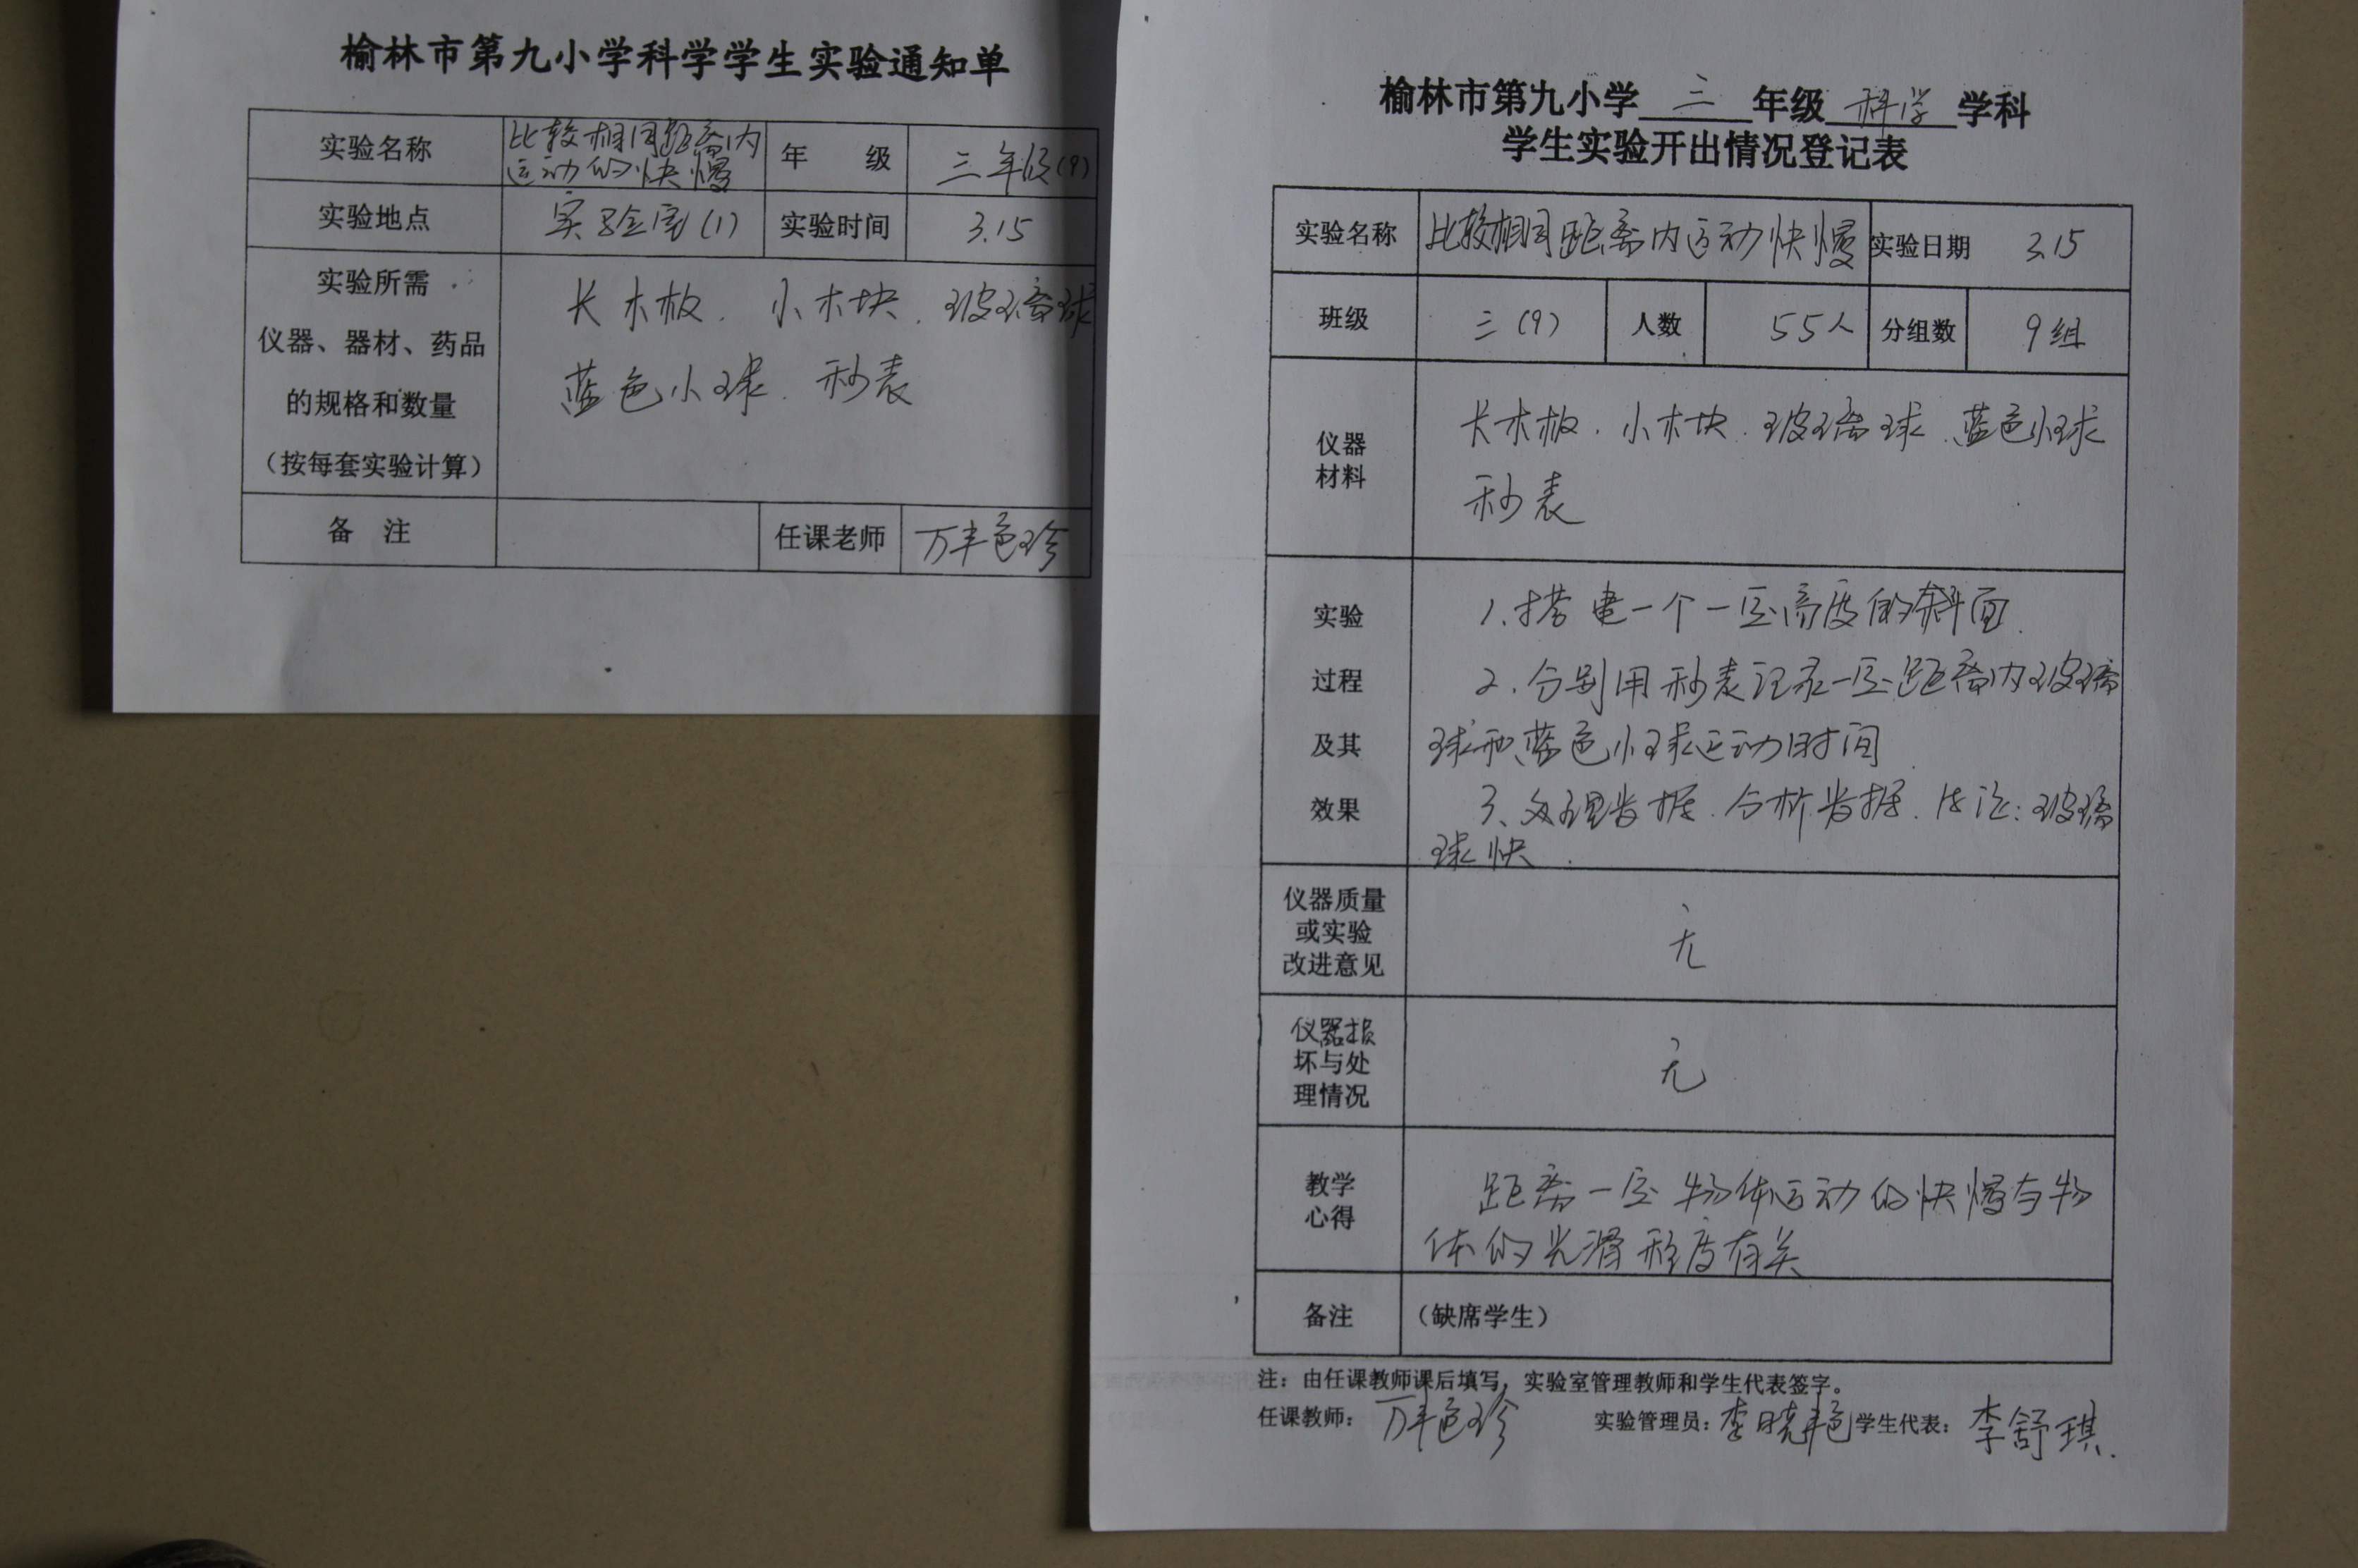 榆林市第九小学科学学生实验通知单
实验名称 比较相同距离内
运动的快慢 年 级 三年级(9)
实验地点 实验室(1) 实验时间 3.15
实验所需
仪器、器材、药品
的规格和数量
(按每套实验计算)
长木板. 小木块. 玻璃球
蓝色小球. 秒表
备 注 任课老师 万艳珍
榆林市第九小学 三 年级 科学 学科
学生实验开出情况登记表
实验名称 比较相同距离内运动快慢 实验日期 3.15
班级 三(9) 人数 55人 分组数 9组
仪器
材料
长木板. 小木块. 玻璃球. 蓝色小球
秒表
实验
过程
及其
效果
1.搭建一个一定高度的斜面.
2.分别用秒表记录一定距离内玻璃
球和蓝色小球运动时间.
3、处理数据.分析数据.结论:玻璃
球快.
仪器质量
或实验
改进意见
无
仪器损
坏与处
理情况
无
教学
心得
距离一定物体运动的快慢与物
体的光滑程度有关
备注 (缺席学生)
注:由任课教师课后填写,实验室管理教师和学生代表签字。
任课教师: 万艳珍 实验管理员: 李晓艳 学生代表: 李舒琪.